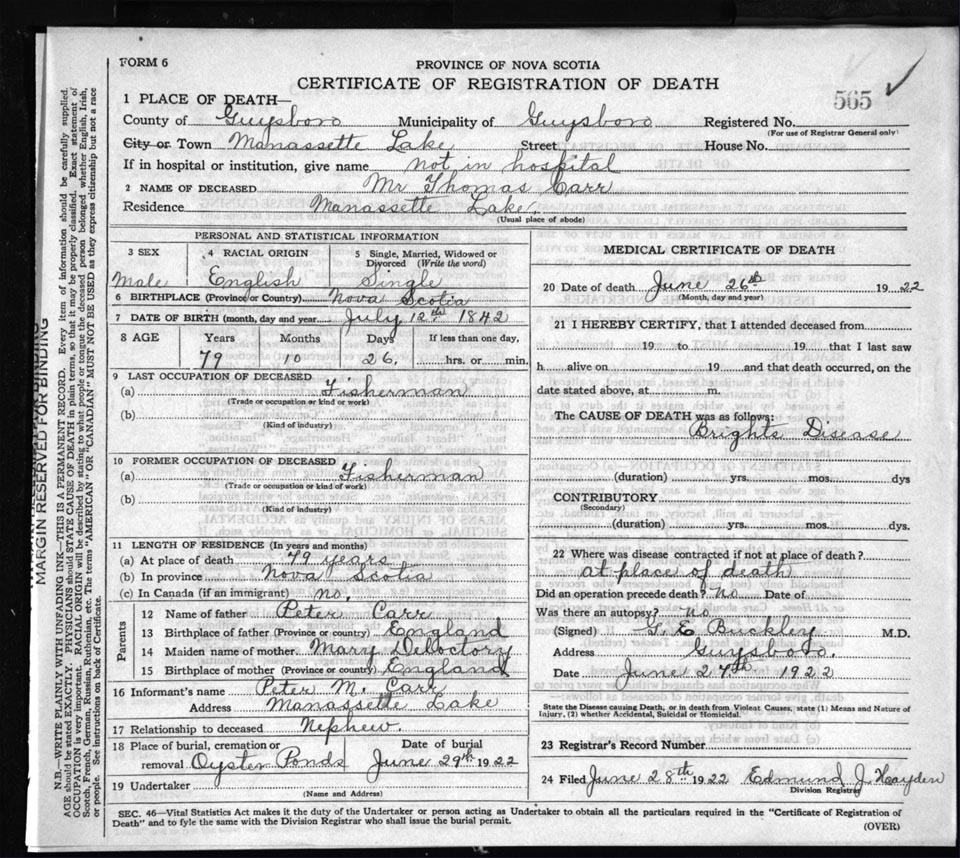 FORM 6
PROVINCE OF NOVA SCOTIA
CERTIFICATE OF REGISTRATION OF DEATH
565
1 PLACE OF DEATH—
County of Guysboro Municipality of Guysboro Registered No.
(For use of Registrar General only)
City or Town Manassette Lake Street House No.
If in hospital or institution, give name not in hospital
2 NAME OF DECEASED Mr Thomas Carr
Residence Manassette Lake.
(Usual place of abode)
PERSONAL AND STATISTICAL INFORMATION
3 SEX 4 RACIAL ORIGIN 5 Single, Married, Widowed or
Divorced (Write the word)
Male English Single
6 BIRTHPLACE (Province or Country) Nova Scotia
7 DATE OF BIRTH (month, day and year) July 12th 1842
8 AGE Years Months Days If less than one day,
79 10 26. hrs. or min.
9 LAST OCCUPATION OF DECEASED
(a) Fisherman
(Trade or occupation or kind of work)
(b)
(Kind of industry)
10 FORMER OCCUPATION OF DECEASED
(a) Fisherman
(Trade or occupation or kind of work)
(b)
(Kind of industry)
11 LENGTH OF RESIDENCE (In years and months)
(a) At place of death 79 years
(b) In province Nova Scotia
(c) In Canada (if an immigrant) no.
Parents
12 Name of father Peter Carr
13 Birthplace of father (Province or country) England
14 Maiden name of mother Mary
15 Birthplace of mother (Province or country) England
16 Informant's name Peter M. Carr
Address Manassette Lake
17 Relationship to deceased Nephew.
18 Place of burial, cremation or Date of burial
removal Oyster Ponds June 29th 1922
19 Undertaker
(Name and Address)
MEDICAL CERTIFICATE OF DEATH
20 Date of death June 26th 1922
(Month, day and year)
21 I HEREBY CERTIFY, that I attended deceased from
19 to 19 that I last saw
h alive on 19 and that death occurred, on the
date stated above, at m.
The CAUSE OF DEATH was as follows:
Brights Disease
(duration) yrs. mos. dys
CONTRIBUTORY
(Secondary)
(duration) yrs. mos. dys.
22 Where was disease contracted if not at place of death?
at place of death
Did an operation precede death? No Date of
Was there an autopsy? No
(Signed) G. E Buckley M.D.
Address Guysboro.
Date June 27th 1922
State the Disease causing Death, or in death from Violent Causes, state (1) Means and Nature of
Injury, (2) whether Accidental, Suicidal or Homicidal.
23 Registrar's Record Number
24 Filed June 28th 1922 Edmund J Hayden
Division Registrar
SEC. 46—Vital Statistics Act makes it the duty of the Undertaker or person acting as Undertaker to obtain all the particulars required in the "Certificate of Registration of
Death" and to fyle the same with the Division Registrar who shall issue the burial permit.
(OVER)
MARGIN RESERVED FOR BINDING
N.B.—WRITE PLAINLY WITH UNFADING INK—THIS IS A PERMANENT RECORD. Every item of information should be carefully supplied.
AGE should be stated EXACTLY. PHYSICIANS should STATE CAUSE OF DEATH in plain terms, so that it may be properly classified. Exact statement of
OCCUPATION is very important. RACIAL ORIGIN will be described by stating to what people or tongue the deceased person belonged whether English, Irish,
Scotch, French, German, Russian, Ruthenian, etc. The terms "AMERICAN" OR "CANADIAN" MUST NOT BE USED as they express citizenship but not a race
or people. See instructions on back of Certificate.